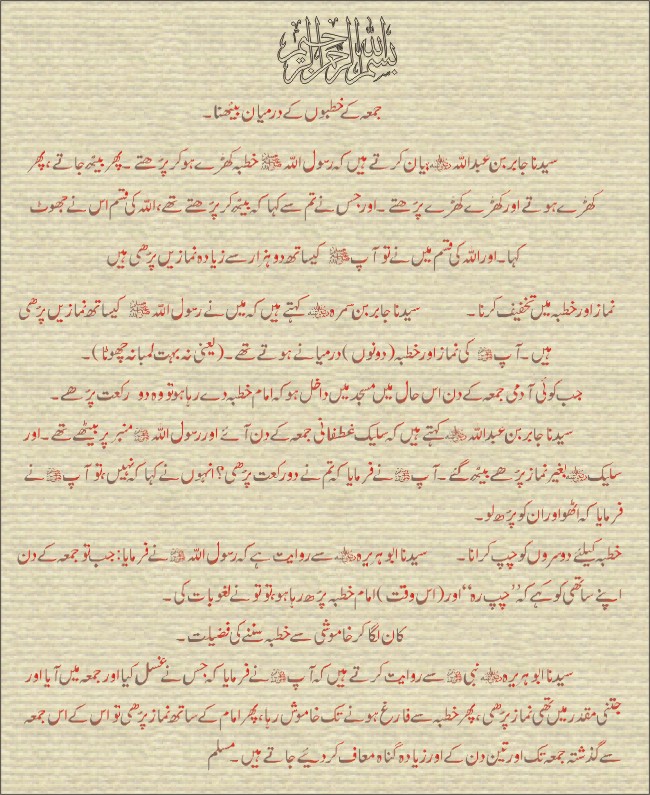 بسم الله الرحمن الرحيم
جمعہ کے خطبوں کے درمیان بیٹھنا۔
سیدنا جابر بن عبداللہ رضی اللہ عنہ بیان کرتے ہیں کہ رسول اللہ ﷺ خطبہ کھڑے ہو کر پڑھتے ۔ پھر بیٹھ جاتے ، پھر
کھڑے ہوتے اور کھڑے کھڑے پڑھتے ۔ اور جس نے تم سے کہا کہ بیٹھ کر پڑھتے تھے ، اللہ کی قسم اس نے جھوٹ
کہا۔ اور اللہ کی قسم میں نے تو آپ ﷺ کیساتھ دو ہزار سے زیادہ نمازیں پڑھی ہیں
نماز اور خطبہ میں تخفیف کرنا ۔ سیدنا جابر بن سمرہ رضی اللہ عنہ کہتے ہیں کہ میں نے رسول اللہ ﷺ کیساتھ نمازیں پڑھی
ہیں ۔ آپ ﷺ کی نماز اور خطبہ ( دونوں ) درمیانے ہوتے تھے ۔ (یعنی نہ بہت لمبا نہ چھوٹا ) ۔
جب کوئی آدمی جمعہ کے دن اس حال میں مسجد میں داخل ہو کہ امام خطبہ دے رہا ہو تو وہ دو رکعت پڑھے ۔
سیدنا جابر بن عبداللہ رضی اللہ عنہ کہتے ہیں کہ سلیک غطفانی جمعہ کے دن آئے اور رسول اللہ ﷺ منبر پر بیٹھے تھے ۔ اور
سلیک رضی اللہ عنہ بغیر نماز پڑھے بیٹھ گئے ۔ آپ ﷺ نے فرمایا کہ تم نے دو رکعت پڑھی؟ انہوں نے کہا کہ نہیں، تو آپ ﷺ نے
فرمایا کہ اٹھو اور ان کو پڑھ لو۔
خطبہ کیلئے دوسروں کو چپ کرانا ۔ سیدنا ابو ہریرہ رضی اللہ عنہ سے روایت ہے کہ رسول اللہ ﷺ نے فرمایا : جب تو جمعہ کے دن
اپنے ساتھی کو کہے کہ ’’چپ رہ‘‘ اور (اس وقت ) امام خطبہ پڑھ رہا ہو، تو تو نے لغو بات کی۔
کان لگا کر خاموشی سے خطبہ سننے کی فضیلت ۔
سیدنا ابو ہریرہ رضی اللہ عنہ نبی ﷺ سے روایت کرتے ہیں کہ آپ ﷺ نے فرمایا کہ جس نے غسل کیا اور جمعہ میں آیا اور
جتنی مقدر میں تھی نماز پڑھی ، پھر خطبہ سے فارغ ہونے تک خاموش رہا ، پھر امام کے ساتھ نماز پڑھی تو اس کے اس جمعہ
سے گذشتہ جمعہ تک اور تین دن کے اور زیادہ گناہ معاف کر دیئے جاتے ہیں ۔ مسلم